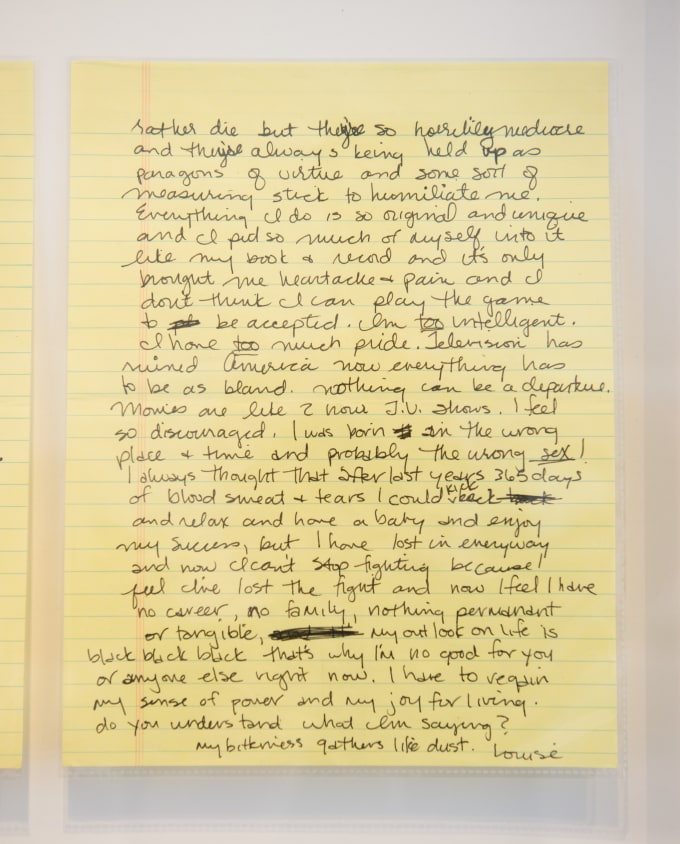 rather die but they're so horribly mediocre
and they're always being held up as
paragons of virtue and some sort of
measuring stick to humiliate me.
Everything I do is so original and unique
and I put so much of myself into it
like my book & record and it's only
brought me heartache & pain and I
don't think I can play the game
to be accepted. I'm too intelligent.
I have too much pride. Television has
ruined America now everything has
to be as bland. nothing can be a departure.
Movies are like 2 hour T.V. shows. I feel
so discouraged. I was born in the wrong
place & time and probably the wrong sex!
I always thought that after last years 365 days
of blood sweat & tears I could kick back
and relax and have a baby and enjoy
my success, but I have lost in everyway
and now I can't stop fighting because I
feel I've lost the fight and now I feel I have
no career, no family, nothing permanant
or tangible, my out look on life is
black black black that's why I'm no good for you
or anyone else right now. I have to regain
my sense of power and my joy for living.
do you understand what I'm saying?
my bitterness gathers like dust. Louise